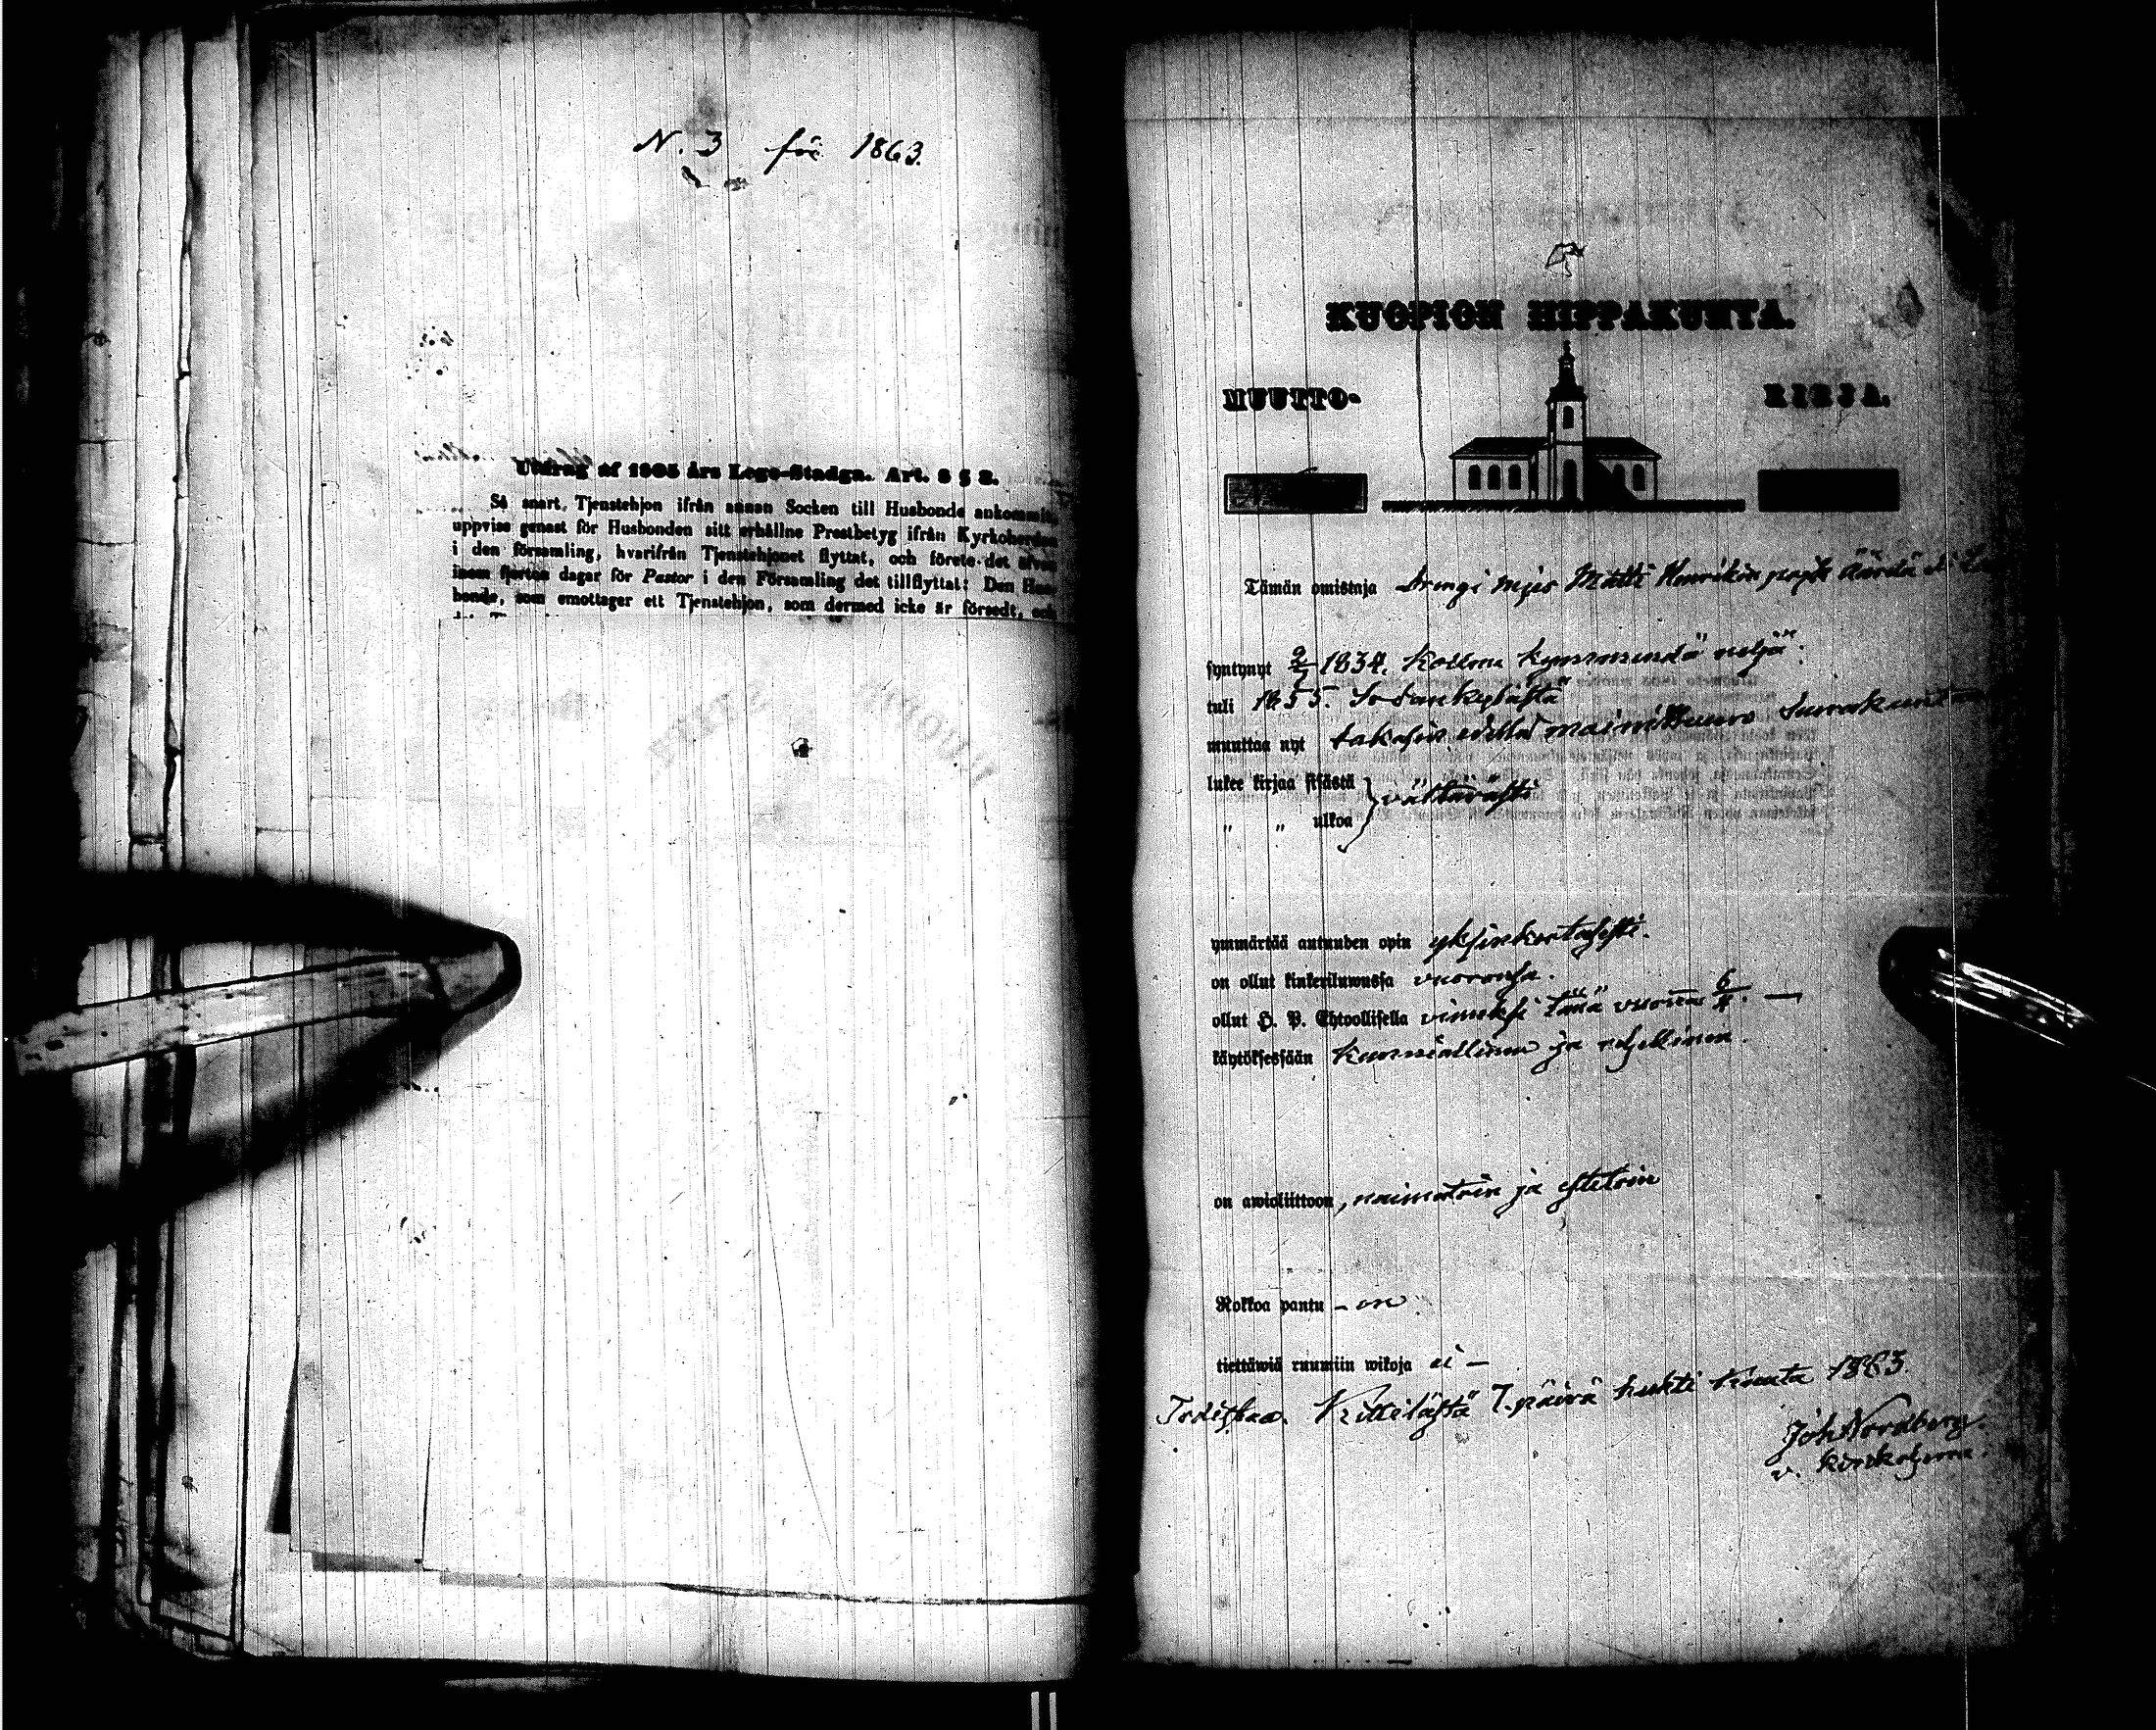 N. 3 för 1863.
Utdrag af 1805 års Lego-Stadga. Art. 6 § 2.
Så snart, Tjenstehjon ifrån annan Socken till Husbonde ankommit,
uppvise genast för Husbonden sitt erhållne Prestbetyg ifrån Kyrkoherden
i den församling, hvarifrån Tjenstehjonet flyttat, och förete det äfven
inom fjorton dagar för Pastor i den Församling det tillflyttat: Den Hus-
bonde, som emottager ett Tjenstehjon, som dermed icke är försedt, och
KUOPION HIPPAKUNTA.
MUUTTO- KIRJA.
Tämän omistaja Drengi mjes Matti Henrikin poja
syntynyt 9/7 1834. Kolme kymmendä neljä.
tuli 1855. Sodankylästä
muuttaa nyt takasin edellä mainittuun Seurakuntan
lukee kirjaa sisästä } välttävästi
" " ulkoa
ymmärtää autuuden opin yksinkertasesti.
on ollut kinkeriluwussa vuoronsa.
ollut H. P. Ehtoollisella vimeksi tänä vuonna 6/4. —
käytöksessään Kunniallinen ja rehellinen.
on awioliittoon, naimatoin ja estetoin
Rokkoa pantu – on
tiettäwiä ruumiin wikoja ei –
Todistaa. Kittilästä 7. päivä huhti kuuta 1863.
Joh Nordberg.
v. kirkoherra.